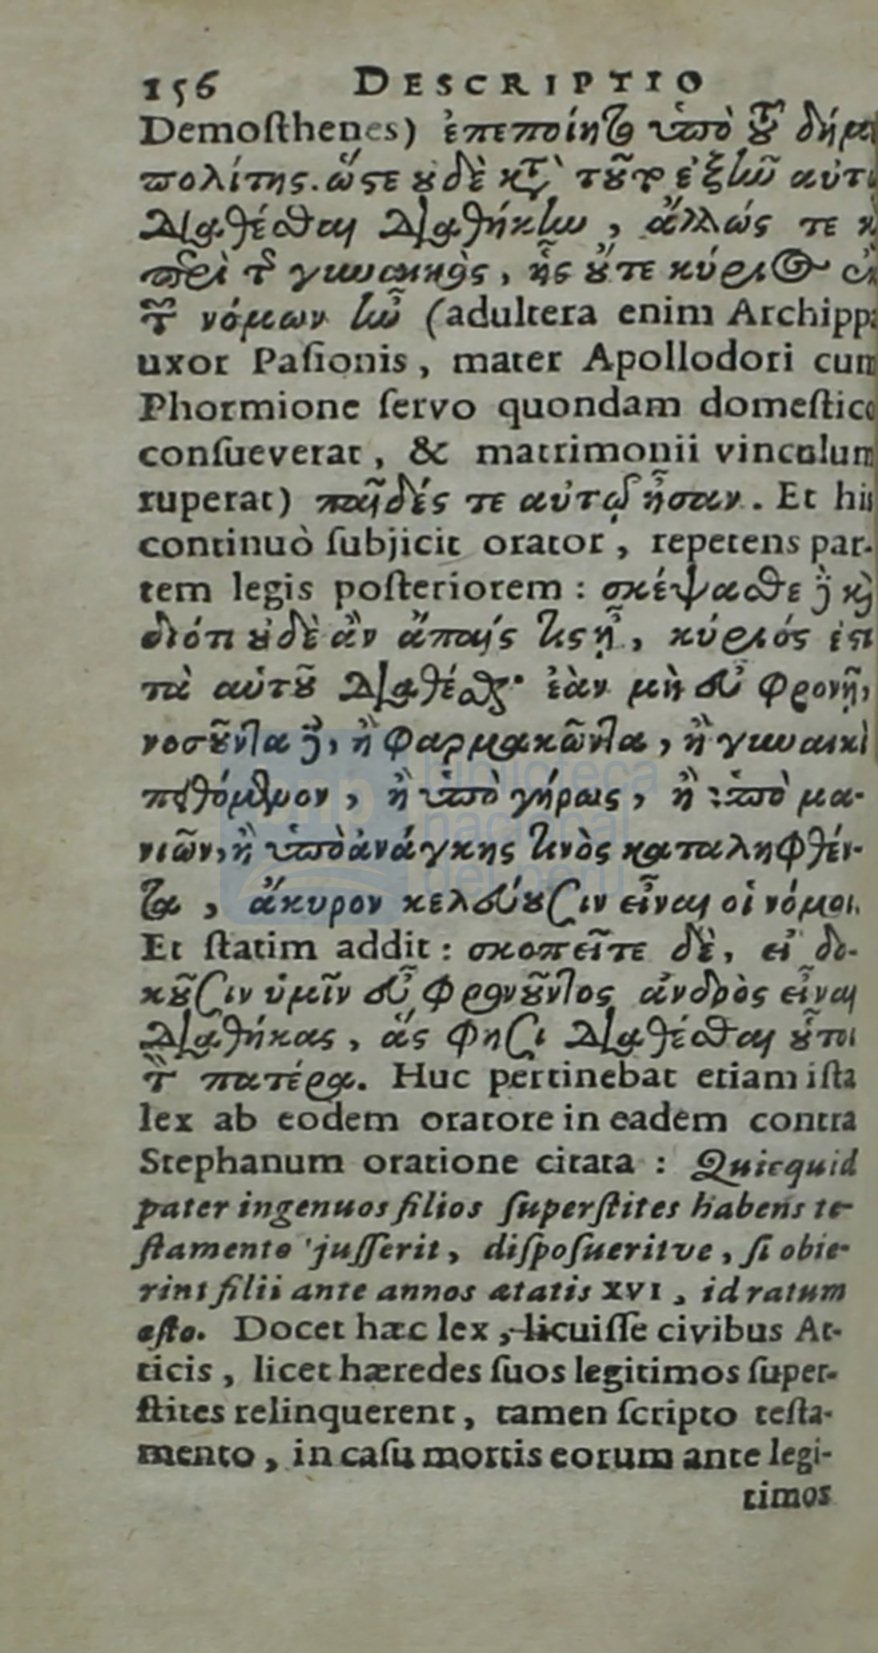 156 DESCRIPTIO
Demoſthenes) ἐπεποίητο ὑπὸ τοῦ δήμου
πολίτης. ὥστε οὐδὲ κατὰ τοῦτο ἐξῆν αὐτῷ
διαθέσθαι διαθήκην, ἄλλως τε κὶ
περὶ τῆς γυναικὸς, ἧς οὔτε κύριος ἐκ
τῶν νόμων ἦν (adultera enim Archippa
uxor Paſionis, mater Apollodori cum
Phormione ſervo quondam domeſtico
conſueverat, & matrimonii vinculum
ruperat) παῖδές τε αὐτῷ ἦσαν. Et his
continuò ſubjicit orator, repetens par-
tem legis poſteriorem: σκέψασθε δὲ κὶ
διότι οὐδὲ ἂν ἄπαις τις ᾖ, κύριός ἐστι
τὰ αὑτοῦ διαθέσθαι· ἐὰν μὴ εὖ φρονῇ,
νοσοῦντα δὲ, ἢ φαρμακῶντα, ἢ γυναικὶ
πειθόμενον, ἢ ὑπὸ γήρως, ἢ ὑπὸ μα-
νιῶν, ἢ ὑπὸ ἀνάγκης τινὸς καταληφθέν-
τα, ἄκυρον κελεύουσιν εἶναι οἱ νόμοι.
Et ſtatim addit: σκοπεῖτε δὲ, εἰ δο-
κοῦσιν ὑμῖν εὖ φρονοῦντος ἀνδρὸς εἶναι
διαθήκας, ἅς φησι διαθέσθαι οὗτοι
τὸν πατέρα. Huc pertinebat etiam iſta
lex ab eodem oratore in eadem contra
Stephanum oratione citata: Quicquid
pater ingenuos filios ſuperſtites habens te-
ſtamento juſſerit, diſpoſueritve, ſi obie-
rint filii ante annos ætatis XVI, id ratum
eſto. Docet hæc lex, licuiſſe civibus At-
ticis, licet hæredes ſuos legitimos ſuper-
ſtites relinquerent, tamen ſcripto teſta-
mento, in caſu mortis eorum ante legi-
timos
bnp biblioteca
nacional
del perú